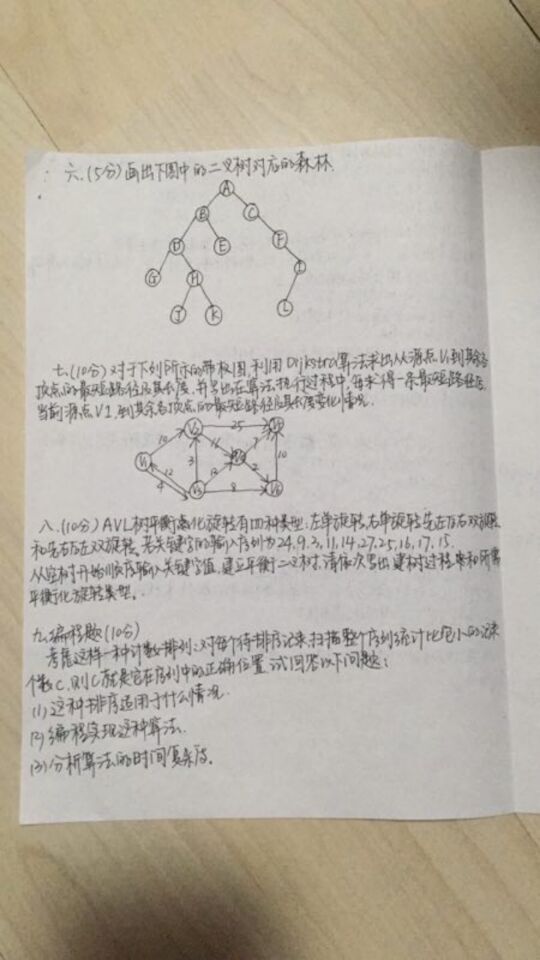 六、(5分)画出下图中的二叉树对应的森林.
A
B C
D E F
G H I
J K L
七、(10分)对于下列所示的带权图,利用Dijkstra算法求出从源点V1到其余各
顶点的最短路径及其长度,并写出在算法执行过程中,每求得一条最短路径后,
当前源点V1,到其余各顶点的最短路径及其长度变化情况.
V2 25
10 16 7
V1 3
12 13 2 10
4 V3 8
八、(10分)AVL树平衡化旋转有四种类型:左单旋转,右单旋转,先左后右双旋转
和先右后左双旋转,若关键字的输入序列为24,9,3,11,14,27,25,16,17,15.
从空树开始顺序输入关键字值,建立平衡二叉树,请依次写出建树过程和所需
平衡化旋转类型.
九、编程题(10分)
考虑这样一种计数排列:对每个待排序记录,扫描整个序列统计比它小的记录
个数C,则C就是它在序列中的正确位置.试回答以下问题:
(1)这种排序适用于什么情况.
(2)编程实现这种算法.
(3)分析算法的时间复杂度.